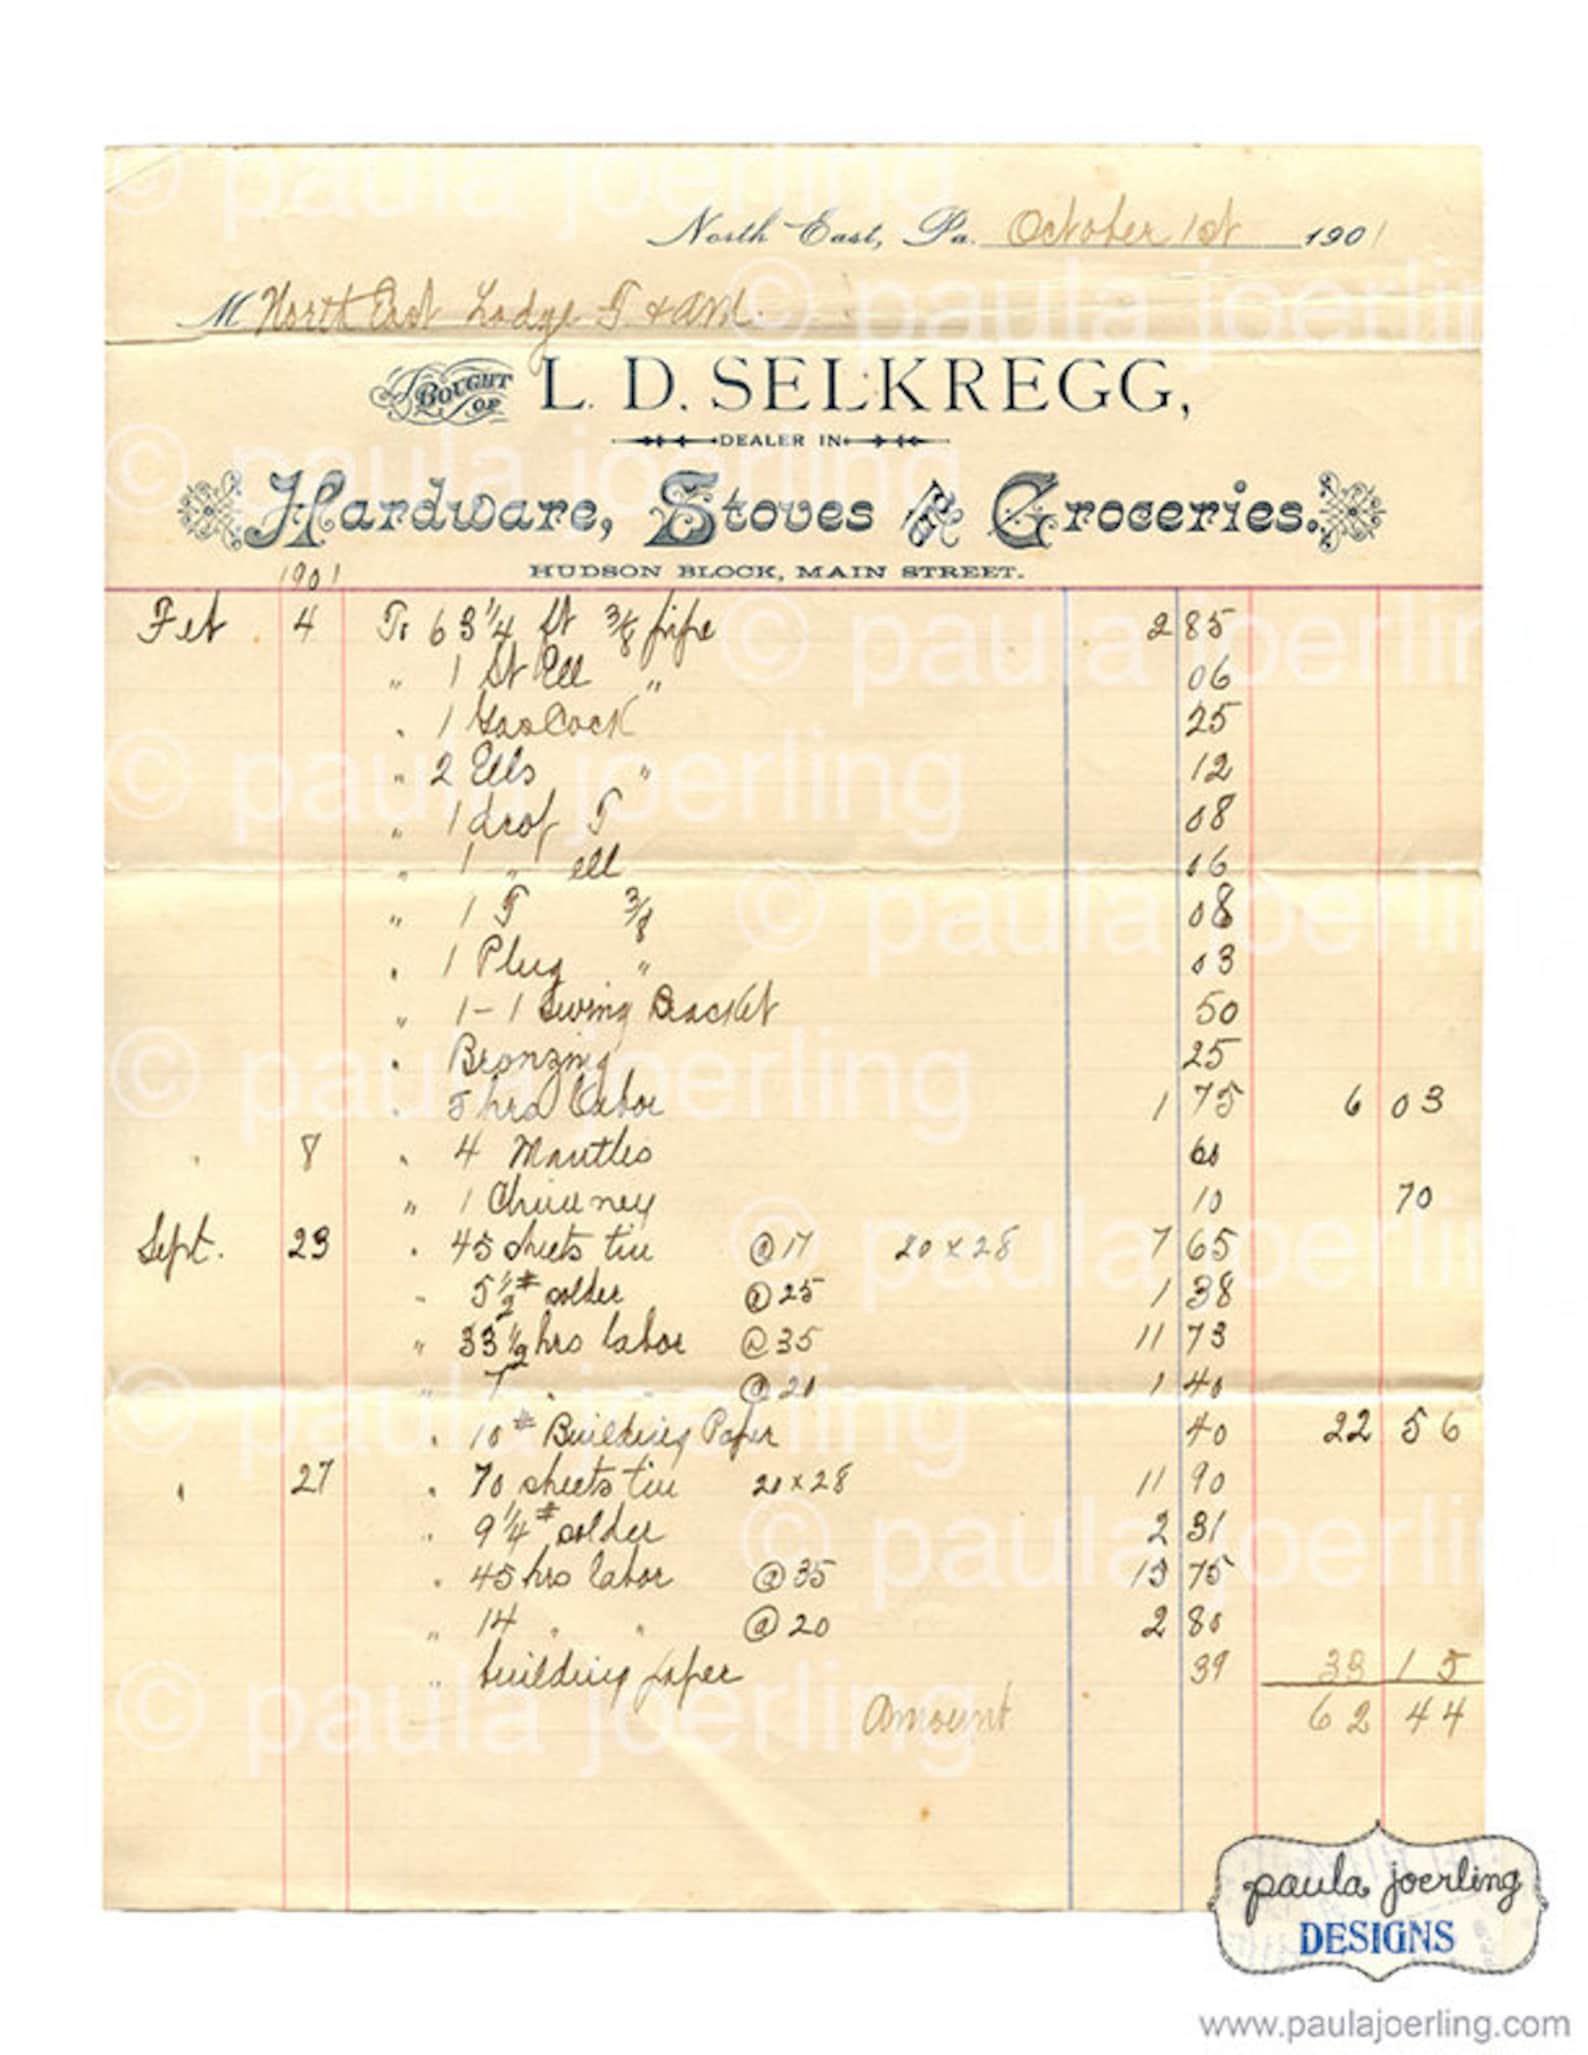 North East, Pa. October 1st 1901
M North East Lodge F. & A.M.
BOUGHT OF L. D. SELKREGG,
DEALER IN
Hardware, Stoves & Groceries.
HUDSON BLOCK, MAIN STREET.
1901
Feb 4 To 63 1/4 ft 3/8 pipe 2 85
" 1 St Ell " 06
" 1 Gas Cock 25
" 2 Ells " 12
" 1 drop T 08
" 1 " ell 06
" 1 T 3/8 08
" 1 Plug " 03
" 1-1 Swing Bracket 50
" Bronzing 25
" 5 hrs labor 1 75 6 03
" 8 " 4 Mantles 60
" 1 Chimney 10 70
Sept. 23 " 45 sheets tin @ 17 20 x 28 7 65
" 5 1/2 # solder @ 25 1 38
" 33 1/2 hrs labor @ 35 11 73
" 7 " " @ 20 1 40
" 10 # Building Paper 40 22 56
" 27 " 70 sheets tin 20 x 28 11 90
" 9 1/4 # solder 2 31
" 45 hrs labor @ 35 15 75
" 14 " " @ 20 2 80
" building paper 39 33 15
Amount 62 44
© paula joerling
paula joerling
DESIGNS
www.paulajoerling.com